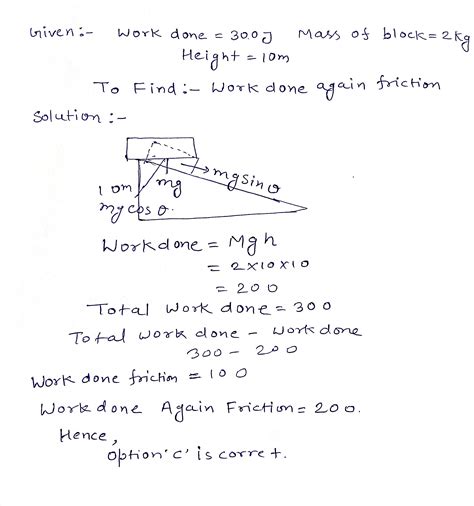 Given:- Work done = 300J Mass of block = 2kg
Height = 10m
To Find:- Work done again friction
Solution:-
10m mg mgsinθ
mg cosθ.
Workdone = Mgh
= 2×10×10
= 200
Total Work done = 300
Total work done - workdone
300 - 200
Work done friction = 100
Work done Again Friction = 200.
Hence,
option 'c' is corret.